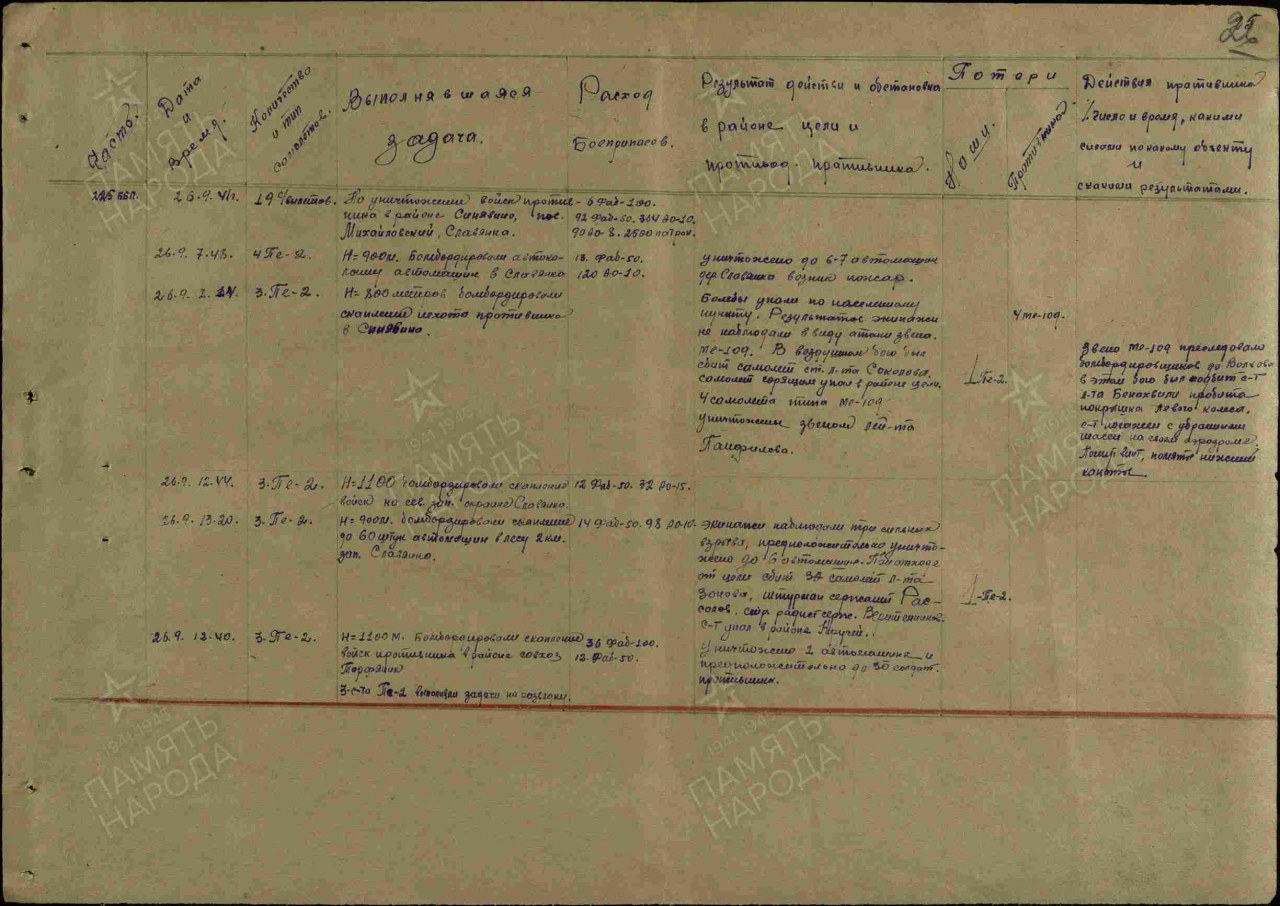 25
Часть.
Дата
и
время.
Количество
и тип
самолетов.
Выполнявшаяся
задача.
Расход
Боеприпасов.
Результат действи и обстановка
в районе цели и
противод. противника.
Потери
Наши.
Противника
Действия противника
число и время, какими
силами по какому объекту
и
с какими результатами.
26.9.41г.
На уничтожение войск против-
ника в районе Синявино, пос.
Михайловский, Славянка.
6 Фаб-100.
92 Фаб-50. 304 Ао-10.
90 Ао-8. 2550 патрон.
26.9. 7.48.
4 Пе-2.
Н=900м. Бомбардировали автоко-
лонну автомашин в Славянка
18 Фаб-50.
120 Ао-10.
уничтожено до 6-7 автомашин
дер Славянка возник пожар.
26.9.
3-Пе-2.
Н=800 метров бомбардировали
скопление пехоты противника
в Синявино.
Бомбы упали по населенному
пункту. Результатов экипажи
не наблюдали в виду атаки звена
Ме-109. В воздушном бою был
сбит самолет ст. л-та Соколова.
самолет горящим упал в районе цели.
4 самолета типа Ме-109
уничтожены звеном лей-та
Панфилова.
1-Пе-2.
4 Ме-109.
Звено Ме-109 преследовало
бомбардировщиков до Волхова
в этом бою был подбит с-т
л-та пробита
покрышка левого колеса.
с-т посажен с убранными
шасси на своем аэродроме.
Погнут винт, помяты нижний
капоты
26.9. 12.44.
3-Пе-2.
Н=1100 бомбардировали скопление
войск на сев. зап. окраине Славянка.
12 Фаб-50. 32 Ао-15.
26.9. 13.20.
3-Пе-2.
Н=900м. бомбардировали скопление
до 60 штук автомашин в лесу 2 км.
зап. Славянка.
14 Фаб-50. 98 Ао-10.
Экипажи наблюдали три сильных
взрыва, предположительно уничто-
жено до 6 автомашин. При отходе
от цели сбит самолет л-та
штурман сержант Рас-
солов, стр. радист серж.
С-т упал в районе
1-Пе-2.
26.9. 12.40.
3-Пе-2.
Н=1100 м. Бомбардировали скопление
войск противника в районе совхоз
Торфяник
3-с-та Пе-2 выполняли задачи на разведку.
36 Фаб-100.
12 Фаб-50.
Уничтожено 2 автомашине и
предположительно до 30 солдат.
противника.
1941-1945
ПАМЯТЬ
НАРОДА